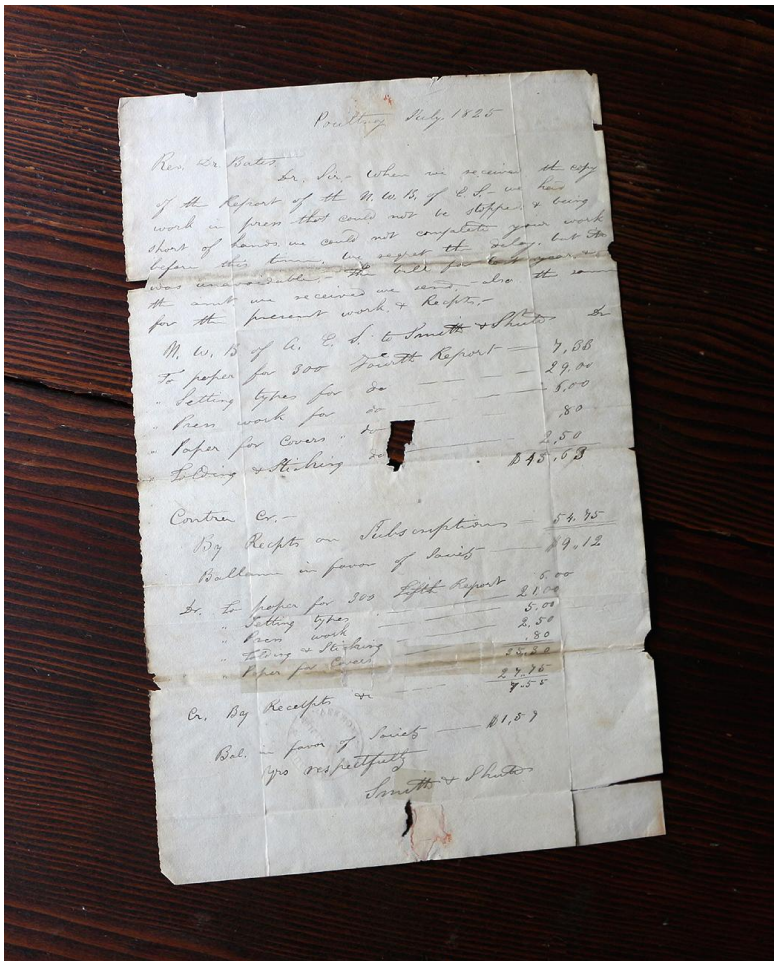 Poultney July 1825
Rev. Dr Bates
Dr. Sir - When we received the copy
of the Report of the N. W. B. of E. S. - we had
work in press that could not be stopped & being
short of hands we could not complete your work
before this time, we regret the delay, but it
was unavoidable. - The bill for last year &
the amt we received we send, - also the same
for the present work & Recpts, -
N. W. B of A. E. S. to Smith & Shute Dr
To paper for 300 Fourth Report — 7,33
" Setting types for do — 29,00
" Press work for do — 6,00
" Paper for Covers " do ,80
" Folding & Stiching do 2,50
$45,63
Contra Cr. -
By Recpts on Subscriptions — 54,75
Ballance in favor of Society — $9,12
Dr. To paper for 300 Fifth Report 6,00
" Setting types — 21,00
" Press work — 5,00
" Folding & Stiching — 2,50
" Paper for Covers — ,80
Cr. By Receipts &c — 27,75
7,55
Bal. in favor of Society — $1,57
Yrs respectfully
Smith & Shute